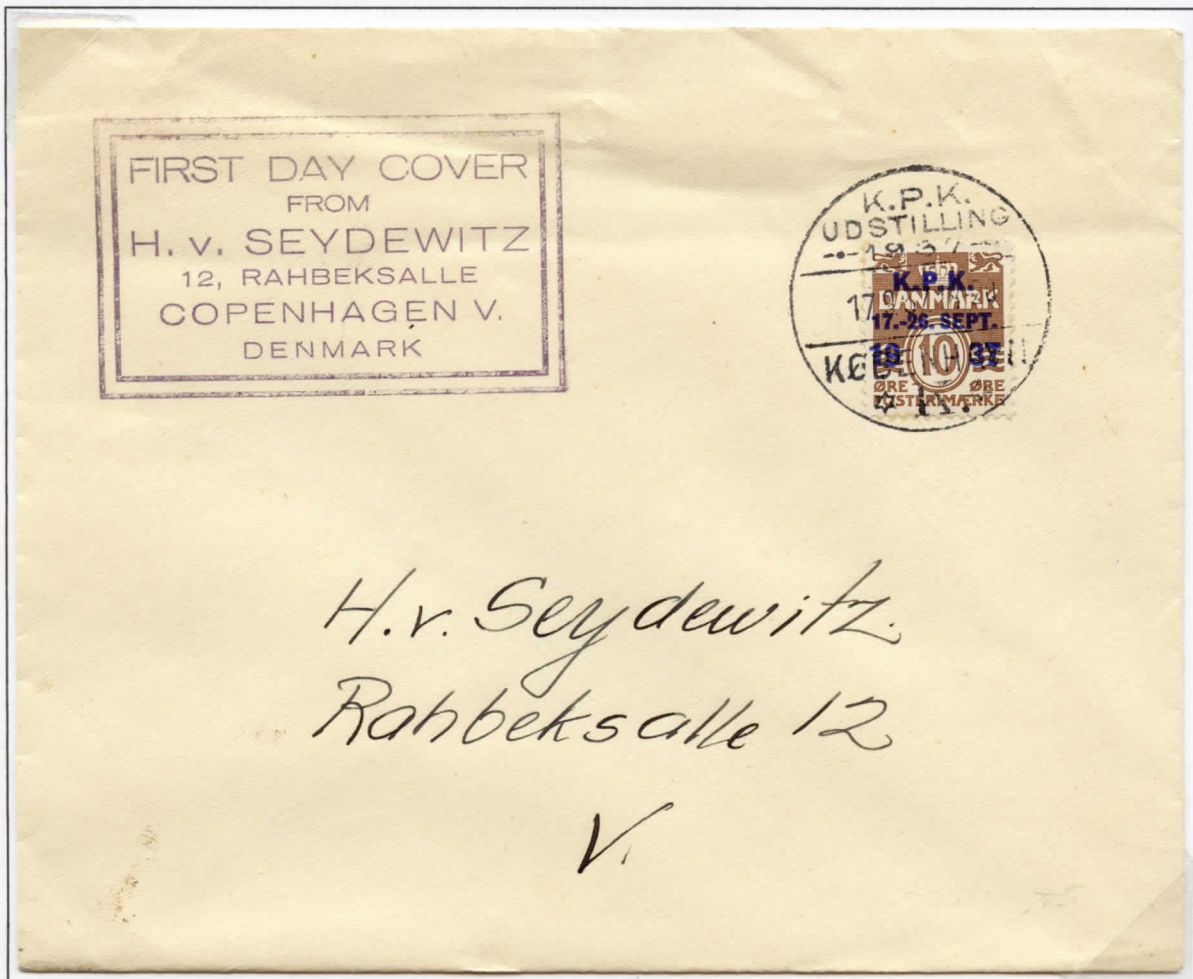 FIRST DAY COVER
FROM
H. v. SEYDEWITZ
12, RAHBEKSALLE
COPENHAGEN V.
DENMARK
K.P.K.
UDSTILLING
1937
17.9
KØBENHAVN
K.
K.P.K.
DANMARK
17.-26. SEPT.
19 10 37
ØRE ØRE
POSTFRIMÆRKE
H. v. Seydewitz.
Rahbeksalle 12
V.